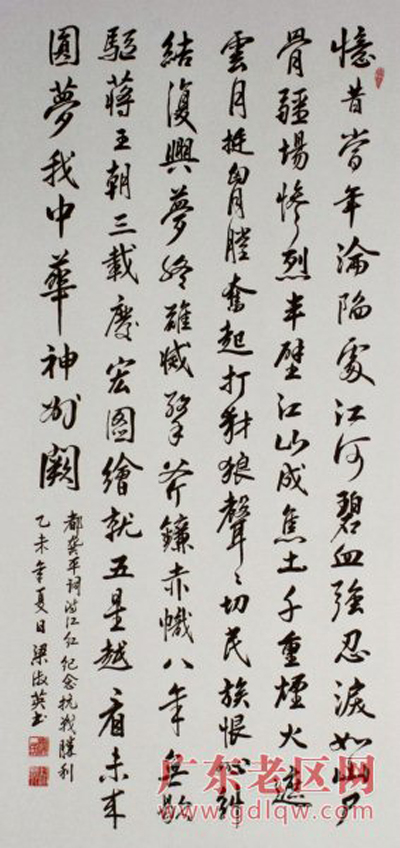 憶昔當年淪陷處江河碧血強忍淚如山尸
骨疆場慘烈半壁江山成焦土千重煙火遮
雲月挺胸膛奮起打豺狼聲々切民族恨心糾
結復興夢終難滅擎斧鐮赤幟八年無歇
驅蔣王朝三載慶宏圖繪就五星越看未來
圓夢我中華神州闕
都龔平詞滿江紅紀念抗戰勝利
乙未年夏日梁淑英書
广东老区网
www.gdlqw.com